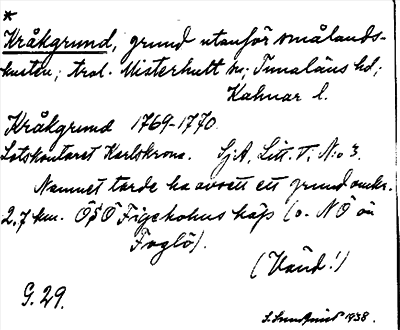 *
Kråkgrund, grund utanför smålands-
kusten; trol. Misterhult sn; Tunaläns hd;
Kalmar l.
Kråkgrund 1769-1770.
Lotskontoret Karlskrona. SjA, Litt. T; N:o 3.
Namnet torde ha avsett ett grund omkr.
2,7 km. ÖSÖ Figeholms hafs (o. NÖ ön
Fogló).
(Vänd!)
G. 29.
S. Lundqvist 1938.